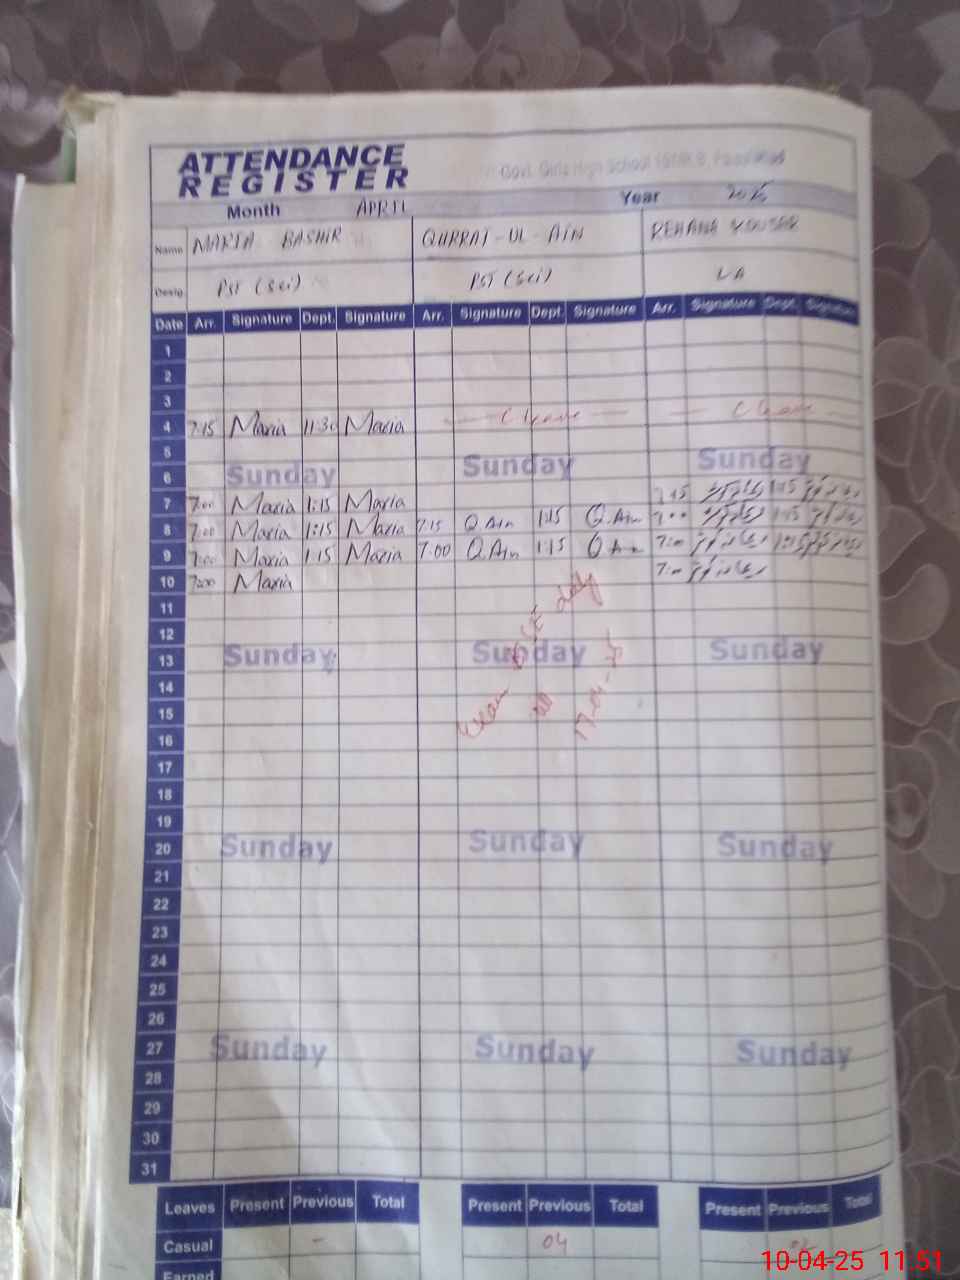 ATTENDANCE
REGISTER
Govt. Girls High School
Month APRIL Year 2025
Name MARIA BASHIR QURRAT-UL-AIN REHANA KOUSAR
Desig. PST (Sci) PST (Sci)
Date Arr. Signature Dept. Signature Arr. Signature Dept. Signature Arr. Signature Dept. Signature
1
2
3
4 7:15 Maria 11:30 Maria — C leave — — C leave
5
6 Sunday Sunday Sunday
7 7:00 Maria 1:15 Maria 7:15 1:15
8 7:00 Maria 1:15 Maria 7:15 Q.Ain 1:15 Q.Ain 7:00 1:15
9 7:00 Maria 1:15 Maria 7:00 Q.Ain 1:15 Q.Ain 7:00 1:15
10 7:00 Maria 7:00
11
12
13 Sunday Sunday Sunday
14
15
16
17
18
19
20 Sunday Sunday Sunday
21
22
23
24
25
26
27 Sunday Sunday Sunday
28
29
30
31
Leaves Present Previous Total Present Previous Total Present Previous Total
Casual - 04
Earned
10-04-25 11.51